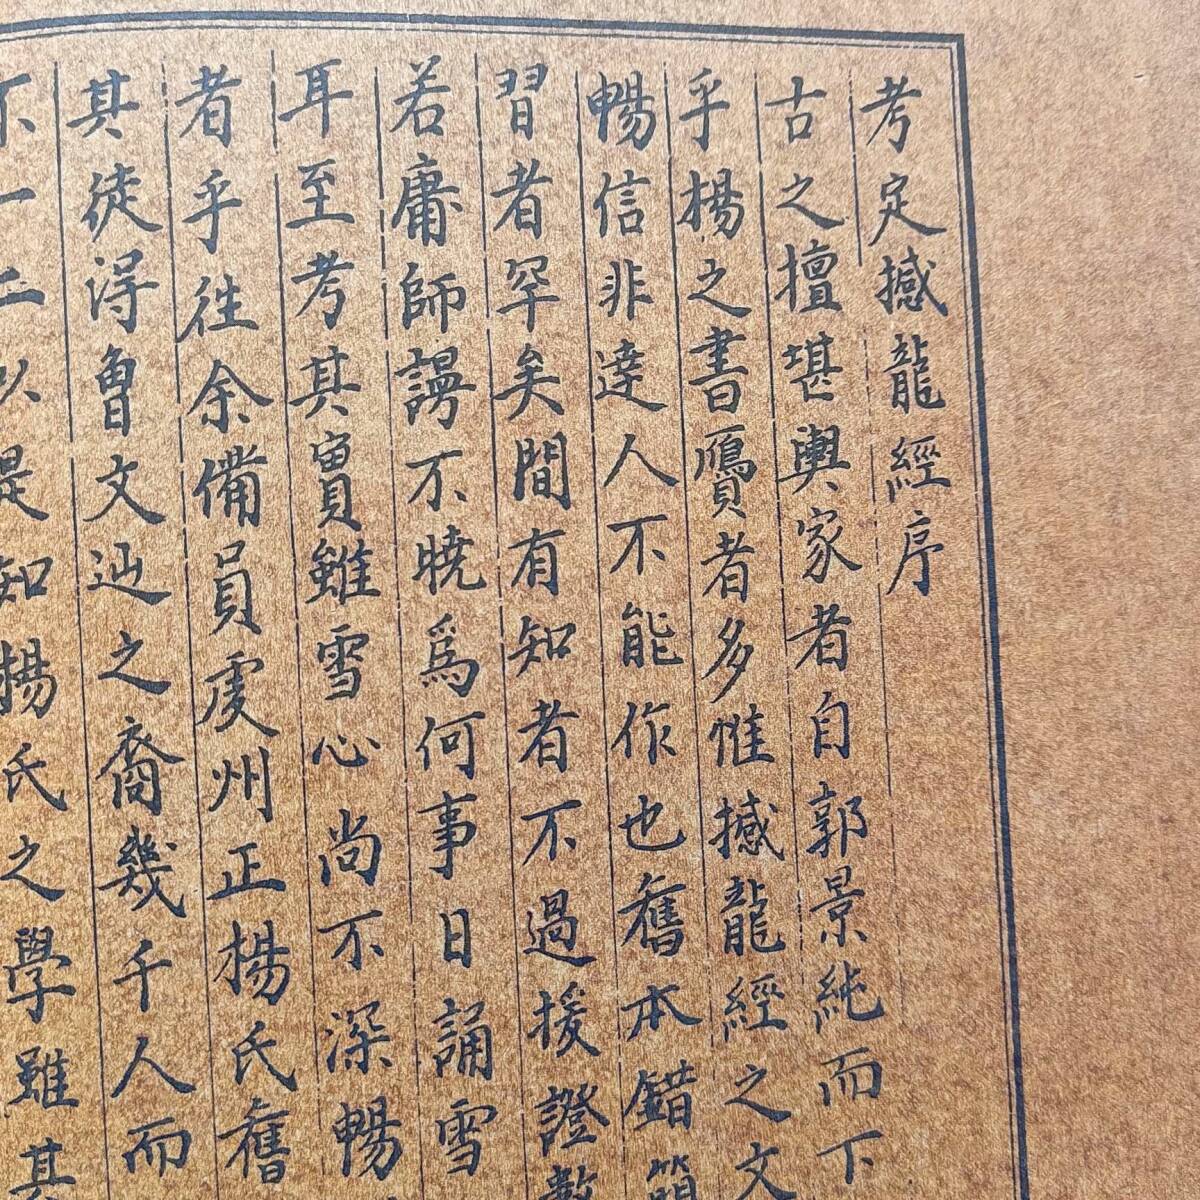 考定撼龍經序
古之擅堪輿家者自郭景純而下
乎楊之書贗者多惟撼龍經之文
暢信非達人不能作也舊本錯簡
習者罕矣間有知者不過援證數
若庸師謾不曉爲何事日誦雪
耳至考其實雖雪心尚不深暢
者乎徃余備員虔州正楊氏舊
其徒淂曾文辿之裔幾千人而
不一二以是知楊氏之學雖其